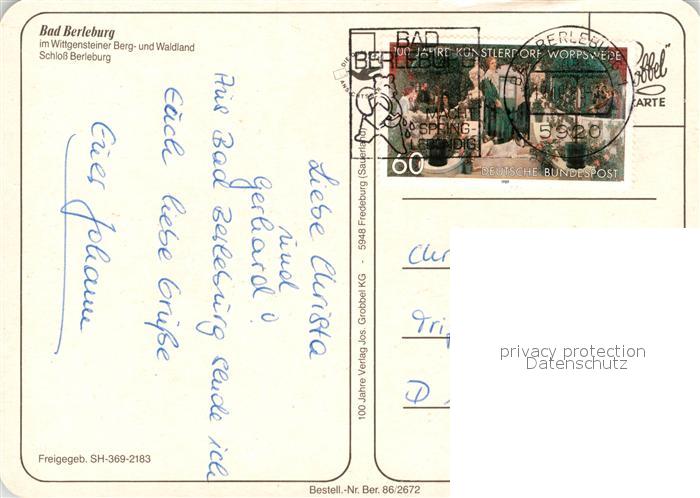 Bad Berleburg
im Wittgensteiner Berg- und Waldland
Schloß Berleburg
Liebe Christa
und
Gerhard!
Aus Bad Berleburg sende ich
Euch liebe Grüße
Euer Johann
Freigegeb. SH-369-2183
Bestell.-Nr. Ber. 86/2672
100 Jahre Verlag Jos. Grobbel KG - 5948 Fredeburg (Sauerland)
100 JAHRE KÜNSTLERDORF WORPSWEDE
60
DEUTSCHE BUNDESPOST
1989
BAD
BERLEBURG
MACHT
SPRING-
LEBENDIG
BERLEBURG
5920
Grobbel"
KARTE
Chr
D
privacy protection
Datenschutz